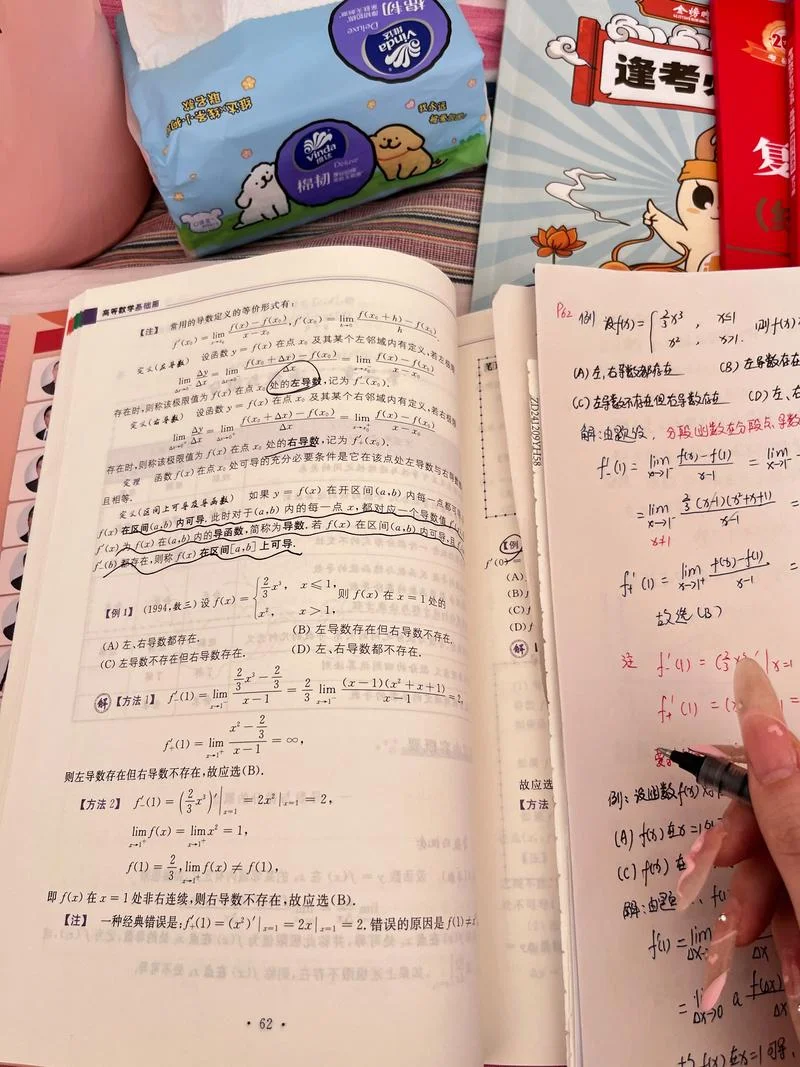 Vinda
维达
棉韧
Deluxe
Vinda
维达
Deluxe
棉韧
逢考
复
高等数学基础篇
【注】 常用的导数定义的等价形式有:
f′(x₀) = lim_{x→x₀} (f(x)−f(x₀))/(x−x₀), f′(x₀) = lim_{h→0} (f(x₀+h)−f(x₀))/h.
定义(左导数) 设函数 y = f(x) 在点 x₀ 及其某个左邻域内有定义,若左极限
lim_{Δx→0⁻} Δy/Δx = lim_{Δx→0⁻} (f(x₀+Δx)−f(x₀))/Δx = lim_{x→x₀⁻} (f(x)−f(x₀))/(x−x₀)
存在时,则称该极限值为 f(x) 在点 x₀ 处的左导数,记为 f′₋(x₀).
定义(右导数) 设函数 y = f(x) 在点 x₀ 及其某个右邻域内有定义,若右极限
lim_{Δx→0⁺} Δy/Δx = lim_{Δx→0⁺} (f(x₀+Δx)−f(x₀))/Δx = lim_{x→x₀⁺} (f(x)−f(x₀))/(x−x₀)
存在时,则称该极限值为 f(x) 在点 x₀ 处的右导数,记为 f′₊(x₀).
定理 函数 f(x) 在点 x₀ 处可导的充分必要条件是它在该点处左导数与右导数
且相等.
定义(区间上可导及导函数) 如果 y = f(x) 在开区间(a,b) 内每一点都可
f(x) 在区间(a,b) 内可导. 此时对于(a,b) 内的每一点 x,都对应一个导数值
f′(x) 为 f(x) 在(a,b) 内的导函数,简称为导数. 若 f(x) 在区间(a,b) 内可导,且
f′₋(b) 都存在,则称 f(x) 在区间[a,b] 上可导.
【例 1】 (1994,数三) 设 f(x) = { (2/3)x³, x ≤ 1, x², x > 1, 则 f(x) 在 x = 1 处的
(A) 左、右导数都存在. (B) 左导数存在但右导数不存在.
(C) 左导数不存在但右导数存在. (D) 左、右导数都不存在.
解 【方法 1】 f′₋(1) = lim_{x→1⁻} ((2/3)x³ − 2/3)/(x−1) = (2/3) lim_{x→1⁻} (x−1)(x²+x+1)/(x−1) = 2,
f′₊(1) = lim_{x→1⁺} (x² − 2/3)/(x−1) = ∞,
则左导数存在但右导数不存在,故应选(B).
【方法 2】 f′₋(1) = ((2/3)x³)′|ₓ₌₁ = 2x²|ₓ₌₁ = 2,
lim_{x→1⁺} f(x) = lim_{x→1⁺} x² = 1,
f(1) = 2/3, lim_{x→1⁺} f(x) ≠ f(1),
即 f(x) 在 x = 1 处非右连续,则右导数不存在,故应选(B).
【注】 一种经典错误是: f′₊(1) = (x²)′|ₓ₌₁ = 2x|ₓ₌₁ = 2. 错误的原因是 f(1) ≠
· 62 ·
【例
f′(0) =
(A)
(B)
(C)
(D)
解
故应选
【方法
ZD241209YH58
P62 例 设f(x) = { (2/3)x³, x≤1 x², x>1. 则f(x)
(A) 左、右导数都存在 (B) 左导数存在
(C) 左导数不存在但右导数存在 (D) 左、右
解:由题分, 分段函数在分段点导数
f′₋(1) = lim_{x→1⁻} (f(x)−f(1))/(x−1) = lim_{x→1⁻}
= lim_{x→1⁻} (2/3)(x−1)(x²+x+1)/(x−1) =
x≠1
f′₊(1) = lim_{x→1⁺} (f(x)−f(1))/(x−1) =
故选(B)
注 f′₋(1) = (2/3 x³)′|x=1
f′₊(1) =
例: 设函数f(x)
(A) f(x)在x=1
(C) f(x)在
解:由题
f′(1) = lim_{Δx→0}
= lim_{Δx→0} a f(Δx)/Δx
f(x)在x=1可导,